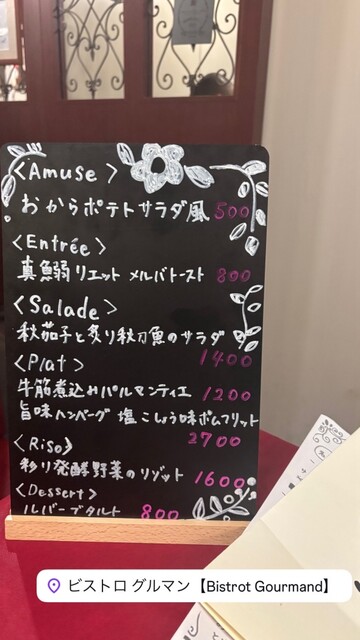 <Amuse>
おからポテトサラダ風 500
<Entrée>
真鰯リエット メルバトースト 800
<Salade>
秋茄子と炙り秋刀魚のサラダ
1400
<Plat>
牛筋煮込みパルマンティエ 1200
旨味ハンバーグ 塩こしょう味ポムフリット
2700
<Riso>
彩り発酵野菜のリゾット 1600
<Dessert>
ルバーブタルト 800
ビストロ グルマン【Bistrot Gourmand】